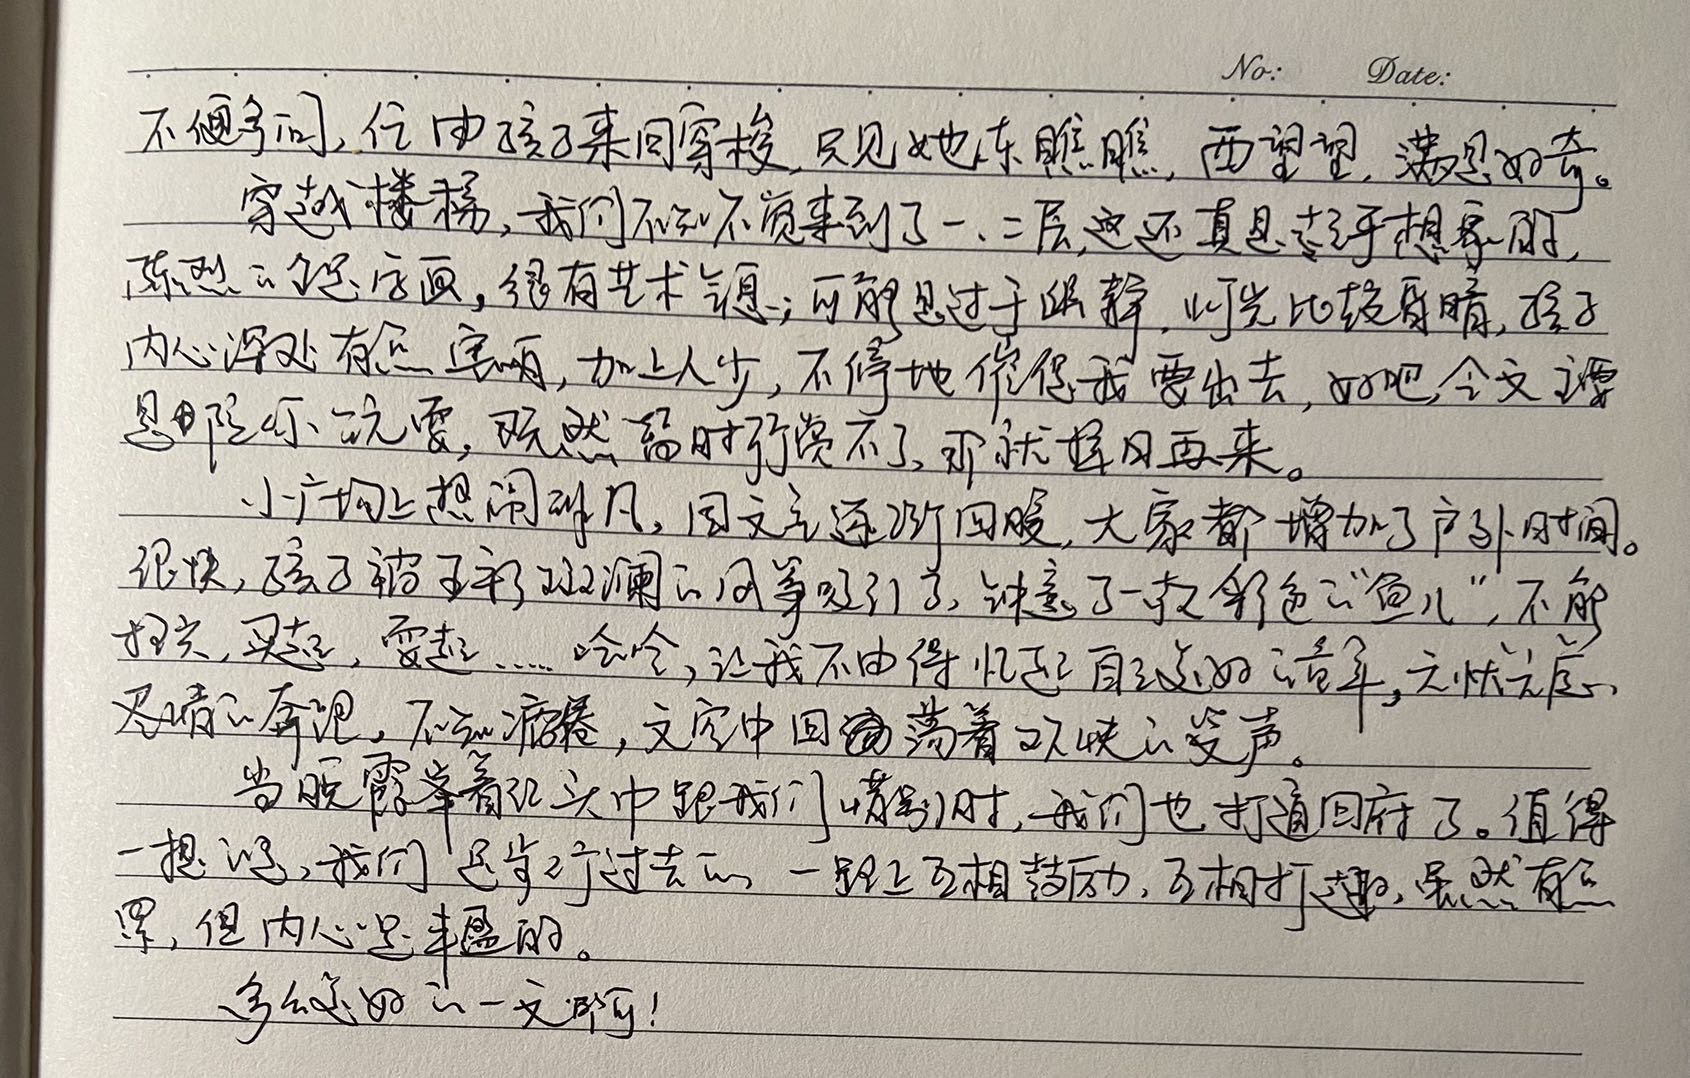 No: Date:
不便多问,任由孩子来回穿梭,只见她东瞧瞧,西望望,满是好奇。
穿越楼梯,我们不知不觉来到了一、二层,这还真是超乎想象的,
陈列的全是字画,很有艺术气息;可能是过于幽静,灯光比较昏暗,孩子
内心深处有点害怕,加上人少,不停地催促我要出去,好吧,今天主要
是陪你玩耍,既然暂时欣赏不了,那就择日再来。
小广场上热闹非凡,因天气逐渐回暖,大家都增加了户外时间。
很快,孩子被五彩斑斓的风筝吸引了,钟意了一款彩色的“鱼儿”,不能
扫兴,买起,耍起……哈哈,让我不由得忆起自己美好的童年,无忧无虑、
尽情的奔跑,不知疲倦,天空中回荡着欢快的笑声。
当晚霞举着红头巾跟我们惜别时,我们也打道回府了。值得
一提的是,我们是步行过去的,一路上互相鼓励,互相打趣,虽然有点
累,但内心是丰盈的。
多么美好的一天啊!